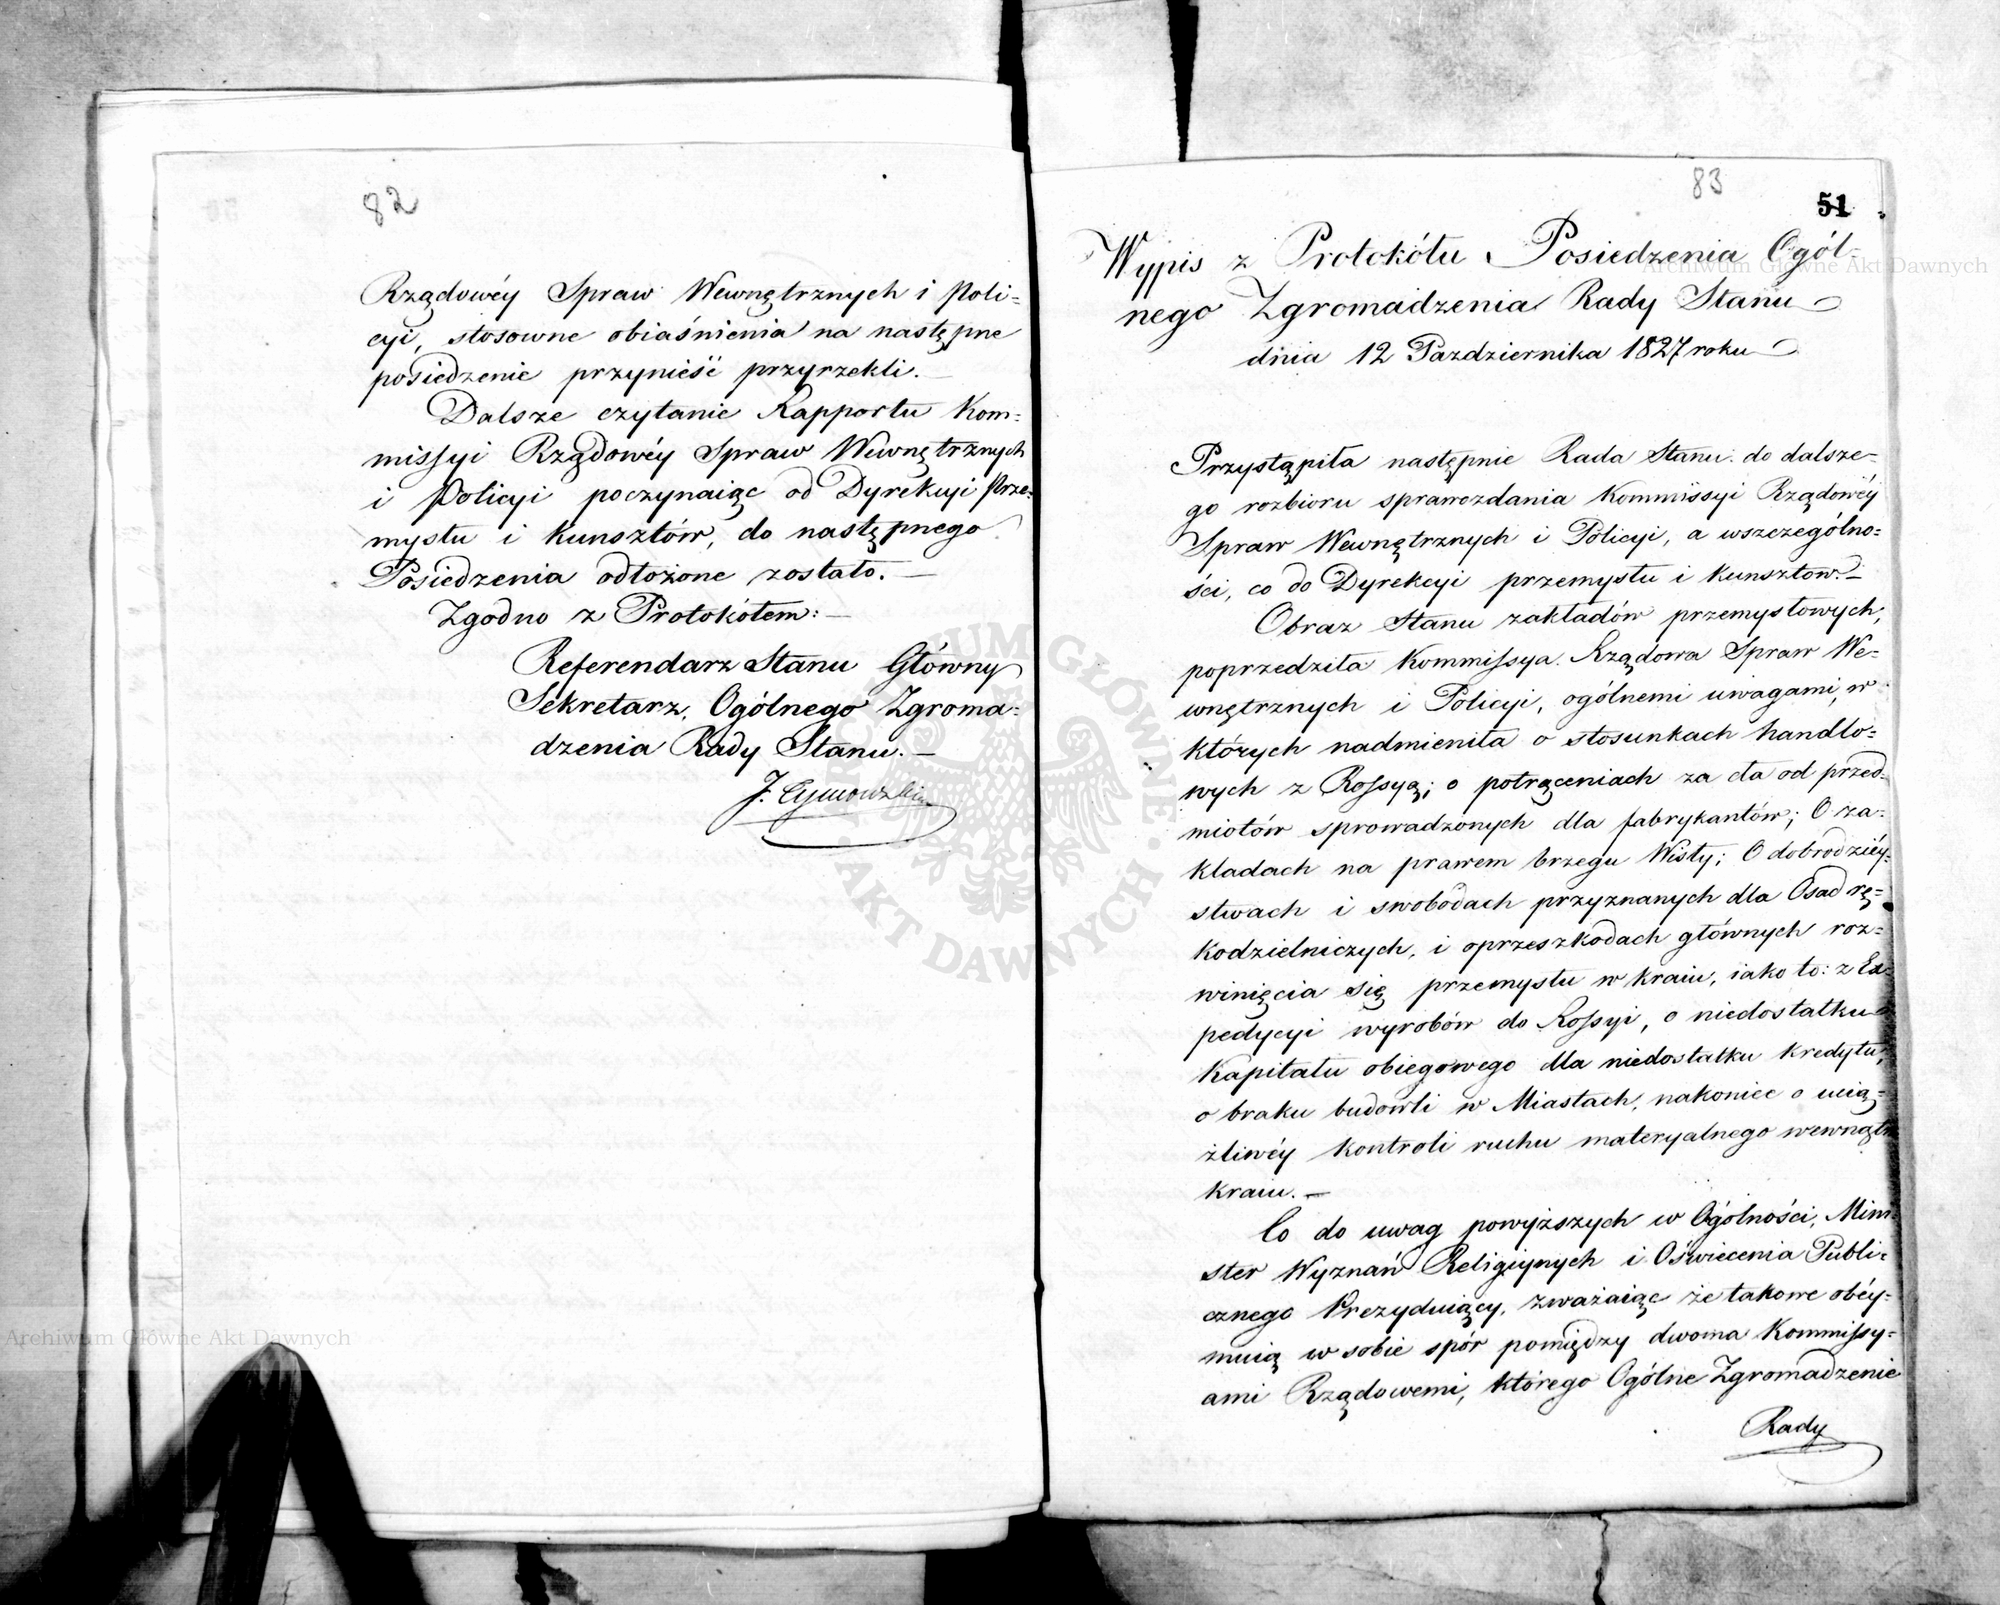 82
Rządowéy Spraw Wewnętrznych i Poli=
cyi, stosowne obiaśnienia na następne
posiedzenie przynieść przyrzekli.—
Dalsze czytanie Rapportu Kom=
missyi Rządowéy Spraw Wewnętrznych
i Policyi poczynaiąc od Dyrekcyi Prze=
mysłu i Kunsztów, do następnego
Posiedzenia odłożone zostało.—
Zgodno z Protokółem:—
Referendarz Stanu Główny
Sekretarz Ogólnego Zgroma=
dzenia Rady Stanu.—
83
51
Wypis z Protokółu Posiedzenia Ogól=
nego Zgromadzenia Rady Stanu
dnia 12 Pazdziernika 1827 roku
Przystąpiła następnie Rada Stanu do dalsze=
go rozbioru sprawozdania Kommissyi Rządowéy
Spraw Wewnętrznych i Policyi, a wszczególno=
ści, co do Dyrekcyi przemysłu i kunsztow.—
Obraz Stanu zakładów przemysłowych,
poprzedziła Kommissya Rządowa Spraw We=
wnętrznych i Policyi, ogólnemi uwagami, w
których nadmieniła o stosunkach handlo=
wych z Rossyą; o potrąceniach za cła od przed=
miotów sprowadzonych dla fabrykantów; O za=
kladach na prawem brzegu Wisły; O dobrodziéy=
stwach i swobodach przyznanych dla Osad rę=
kodzielniczych, i oprzeszkodach głównych roz=
winięcia się przemysłu w kraiu, iako to: z Ex=
pedycyi wyrobów do Rossyi, o niedostatku
Kapitału obiegowego dla niedostatku kredytu,
o braku budowli w Miastach, nakoniec o ucią=
żliwéy kontroli ruchu materyalnego wewnątrz
kraiu.—
Co do uwag powyższych w Ogólności, Mini=
ster Wyznań Religiynych i Oświecenia Publi=
cznego Prezyduiący, zważaiąc że takowe obéy=
muią w sobie spór pomiędzy dwoma Kommissy=
ami Rządowemi, którego Ogólne Zgromadzenie
Rady
Archiwum Główne Akt Dawnych
Archiwum Główne Akt Dawnych
ARCHIWUM GŁÓWNE · AKT DAWNYCH ·